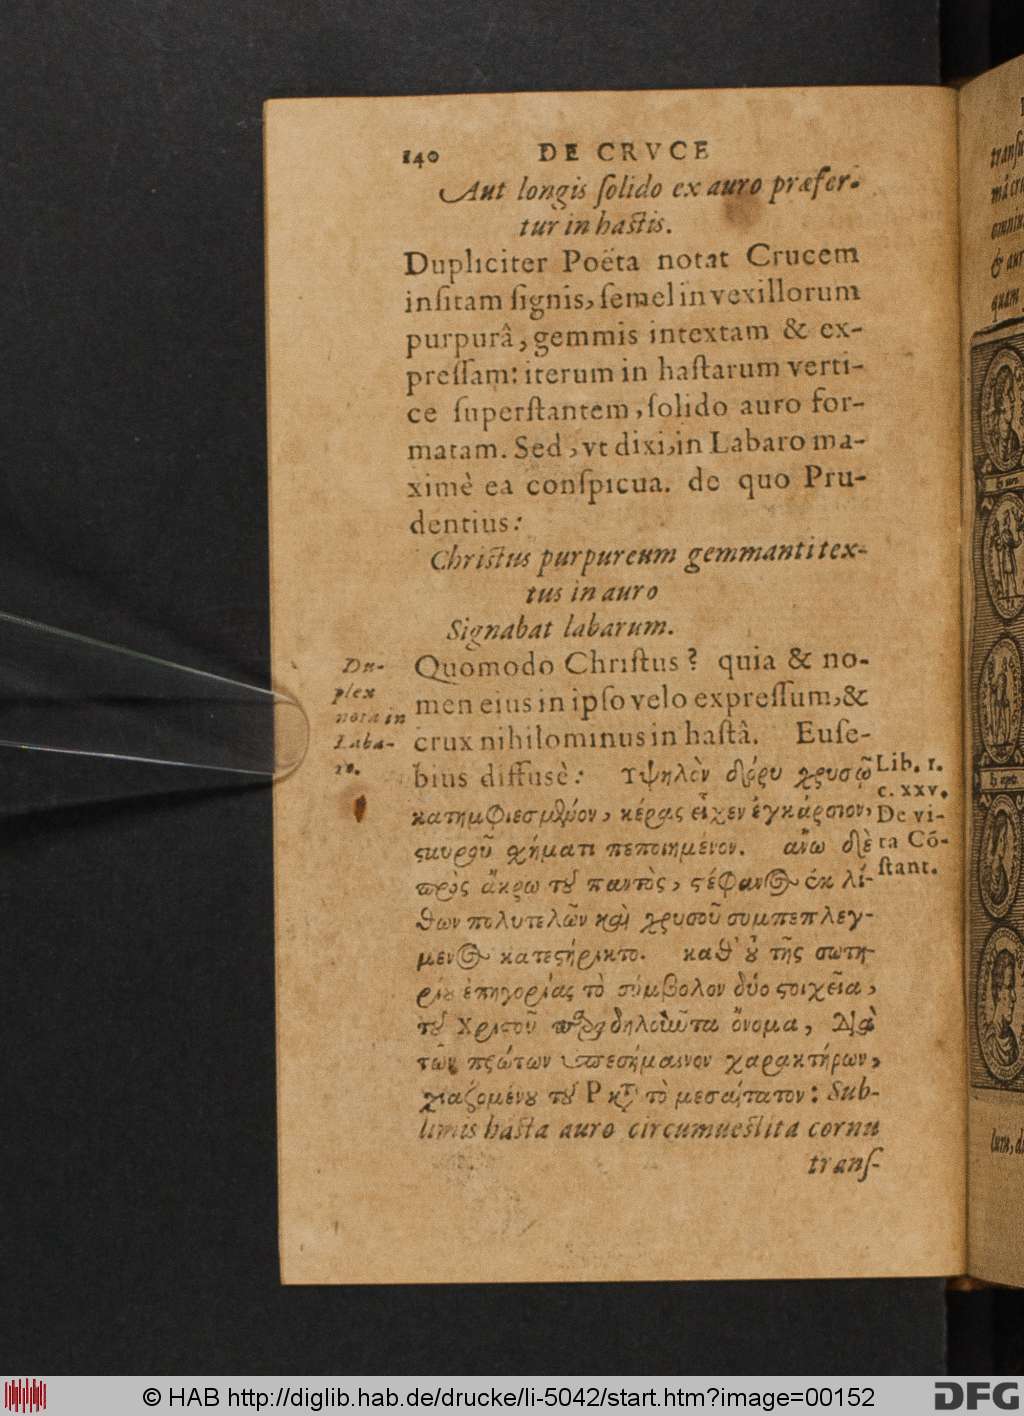 140 DE CRVCE
Aut longis ſolido ex auro præfer-
tur in haſtis.
Duplıciter Poëta notat Crucem
inſitam ſignis, ſemel in vexillorum
purpurâ, gemmis intextam & ex-
preſſam: iterum in haſtarum verti-
ce ſuperſtantem, ſolido auro for-
matam. Sed, vt dixi, in Labaro ma-
ximè ea conſpicua. de quo Pru-
dentius:
Chriſtus purpureum gemmanti tex-
tus in auro
Signabat labarum.
Quomodo Chriſtus? quia & no-
men eius in ipſo velo expreſſum, &
crux nihilominus in haſtâ. Euſe-
bius diffusè: Υψηλὸν δόρυ χρυσῷ
κατημφιεσμένον, κέρας εἶχεν ἐγκάρσιον,
ςαυροῦ χήματι πεποιημένον. ἄνω δὲ
πρὸς ἄκρω τοῦ παντὸς, ςέφανος ἐκ λί-
θων πολυτελῶν καὶ χρυσοῦ συμπεπλεγ-
μενος κατεςήρικτο. καθ' οὗ τῆς σωτη-
ρίου ἐπηγορίας τὸ σύμβολον δύο ςοιχεῖα,
τοῦ Χριςοῦ παραδηλοῦντα ὄνομα, διὰ
τῶν πρώτων ὑπεσήμαινον χαρακτήρων,
χιαζομένου τοῦ Ρ κατὰ τὸ μεσαίτατον: Sub-
limis haſta auro circumueſtita cornu
tranſ-
Du-
plex
nota in
Laba-
ro.
Lib. 1.
c. xxv.
De vi-
ta Cõ-
ſtant.
© HAB http://diglib.hab.de/drucke/li-5042/start.htm?image=00152
DFG